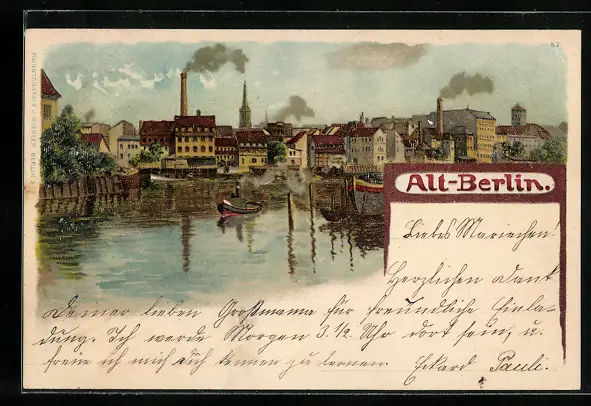 62
KUNSTANSTALT J. MIESLER BERLIN S.
Alt-Berlin.
Liebes Mariechen!
Herzlichen Dank
Deiner lieben Großmama für freundliche Einla-
dung. Ich werde Morgen 3 1/2 Uhr dort sein, u.
freue ich mich Dich kennen zu lernen.
Eckard Pauli.